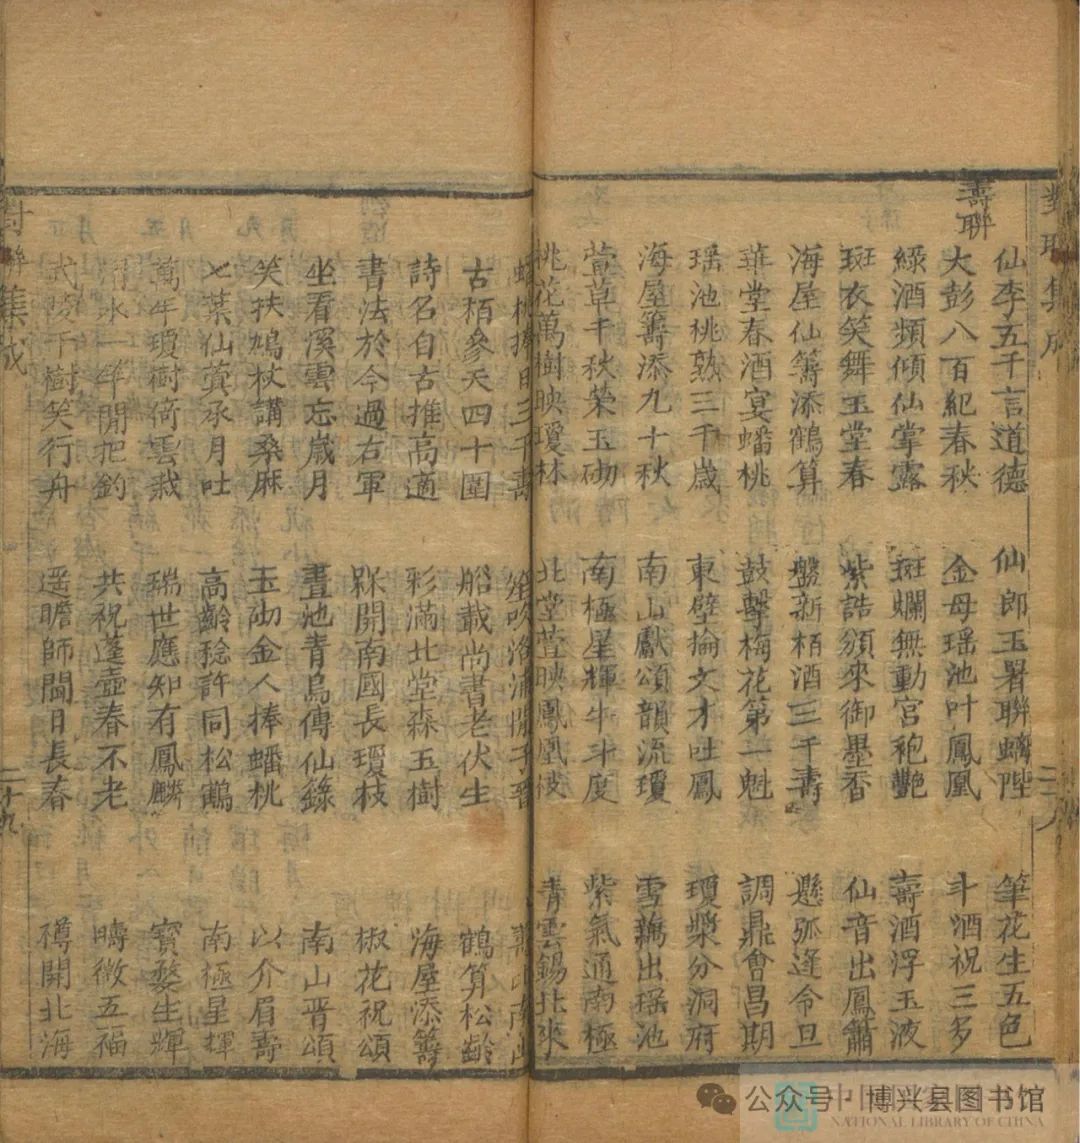 對聯集成
壽聯
仙李五千言道德 仙郎玉署聯螭陛 筆花生五色
大彭八百紀春秋 金母瑶池叶鳳凰 斗酒祝三多
綠酒頻傾仙掌露 斑斕無動宮袍艷 壽酒浮玉液
斑衣笑舞玉堂春 紫誥頒來御墨香 仙音出鳳簫
海屋仙籌添鶴算 盤新栢酒三千壽 懸弧逢令旦
華堂春酒宴蟠桃 鼓擊梅花第一魁 調鼎會昌期
瑶池桃熟三千歲 東壁掄文才吐鳳 瓊漿分洞府
海屋籌添九十秋 南山獻頌韻流瓊 雪藕出瑶池
萱草千秋榮玉砌 南極星輝牛斗度 紫氣通南極
桃花萬樹映瓊林 北堂萱映鳳凰枝 青雲錫北來
蟠桃捧日三千壽 笙吹洛浦 子晉 壽比南山
古栢參天四十圍 船載尚書老伏生 鶴算松齡
詩名自古推高適 彩滿北堂森玉樹 海屋添籌
書法於今過右軍 開南國長瓊枝 椒花祝頌
坐看溪雲忘歲月 晝池青鳥傳仙籙 南山晉頌
笑扶鳩杖講桑麻 玉砌金人捧蟠桃 以介眉壽
七葉仙蓂承月吐 高齡稔許同松鶴 南極星輝
萬年瓊樹倚雲栽 瑞世應知有鳳麟 寳婺生輝
水一竿閒把釣 共祝蓬壺春不老 疇徵五福
武陵千樹笑行舟 遥瞻師閫日長春 樽開北海
對聯集成
二十九
公众号·博兴县图书馆
NATIONAL LIBRARY OF CHINA